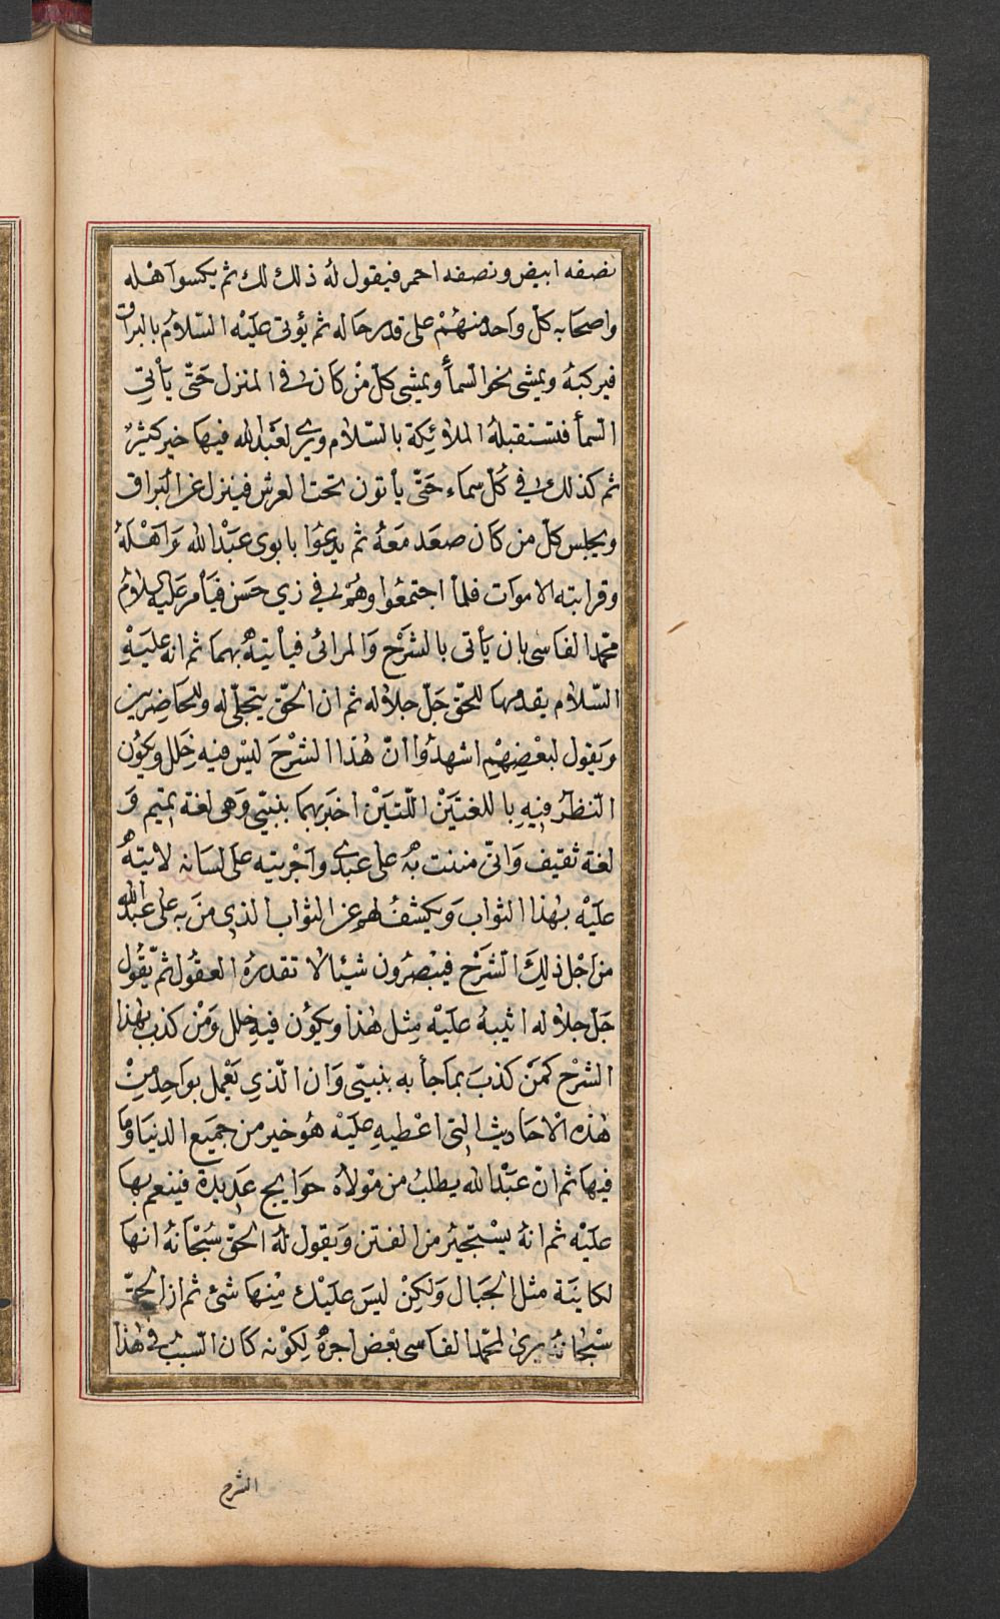 نصفه ابيض ونصفه احمر فيقول لهُ ذلك لك ثم يكسوا اهْله
واصحَابه كلّ واَحد منهُمْ على قدر حَاله ثم يؤتى عليْه السّلاوُم بالبراق
فيركبهُ ويمشى نحو السمأ ويمشى كلّ مْن كاَن فى المنزل حَتّى يَأتي
السمأ فتستقبلهُ الملاوئِكة بالسّلاوم ويرى لعَبْد الله فيهَا خيركثيرٌ
ثم كذلك فى كُلّ سماء حَتّى يأتون تحت العرش فينزل عن البَراق
ويجلس كلّ من كاَن صعَد مَعهُ ثم يدعُوا بابوى عَبْد الله وَاهْلَهُ
وقرابته الاموَات فلمأ اجتمعُوا وهُم فى زي حَسَن فيَأمر عَليْه السلاوُم
محمّد الفاسى بان يَأتى بالشرْح وَالمرائى فيأتيهُ بهمَا ثم انهُ عليَهْ
السّلاوم يقدمهَا للحقّ جَلّ جلاوله ثم ان الحقّ يتجلّى له وللحَاضِرين
وَيقول لبعْضِهمْ اشهدُوا انّ هٰذا الشرْحَ ليْس فيه خَلل ويكوُن
النظَرُ فيهِ باللغتَيَنْ اللّتيَنْ اخبَر بهمَا نبيّى وَهى لغة تميم وَ
لغة ثقيف وَانّى مننت بهُ على عبدى واَجْريته عَلى لسَانه لاثيبهُ
عليَهْ بهٰذا الثواب وَيكشفُ لهم عن الثوَاب الذي منَ به على عبد الله
من اجْل ذلِكَ الشرَح فيبْصرُون شيئا لا تقدرُهُ العقوُل ثمّ يقُول
جَلّ جلاوله اثيبهُ عليَهْ مِثل هٰذا ويكوُن فيهِ خلل وَمْن كذب بهٰذا
الشرْح كمَنْ كذبَ بمَاجأ به نبيّى وَان الذي يَعْمل بواحِد مِنْ
هٰذه الاْحَاديث التى اعْطيهِ عليَهْ هوُ خير من جميَع الدنيَا وَمَا
فيهَا ثم انّ عَبْد الله يطلبُ من موْلاهُ حوَايج عَديدة فينعم بهَا
عليَهْ ثم انهُ يسْتجيرُ من الفتن وَيقول لهُ الحقّ سُبْحَانهُ انهَا
لكاينَة مثل الجبَال وَلكِنْ ليسَ عليَك مِنهَا شئ ثم ان الحقّ
سبْحَانهُ يرىٰ لمحمّد الفاسى بعْض اجرهُ لِكوْنه كاَن السَببُ فى هٰذا
الشرح